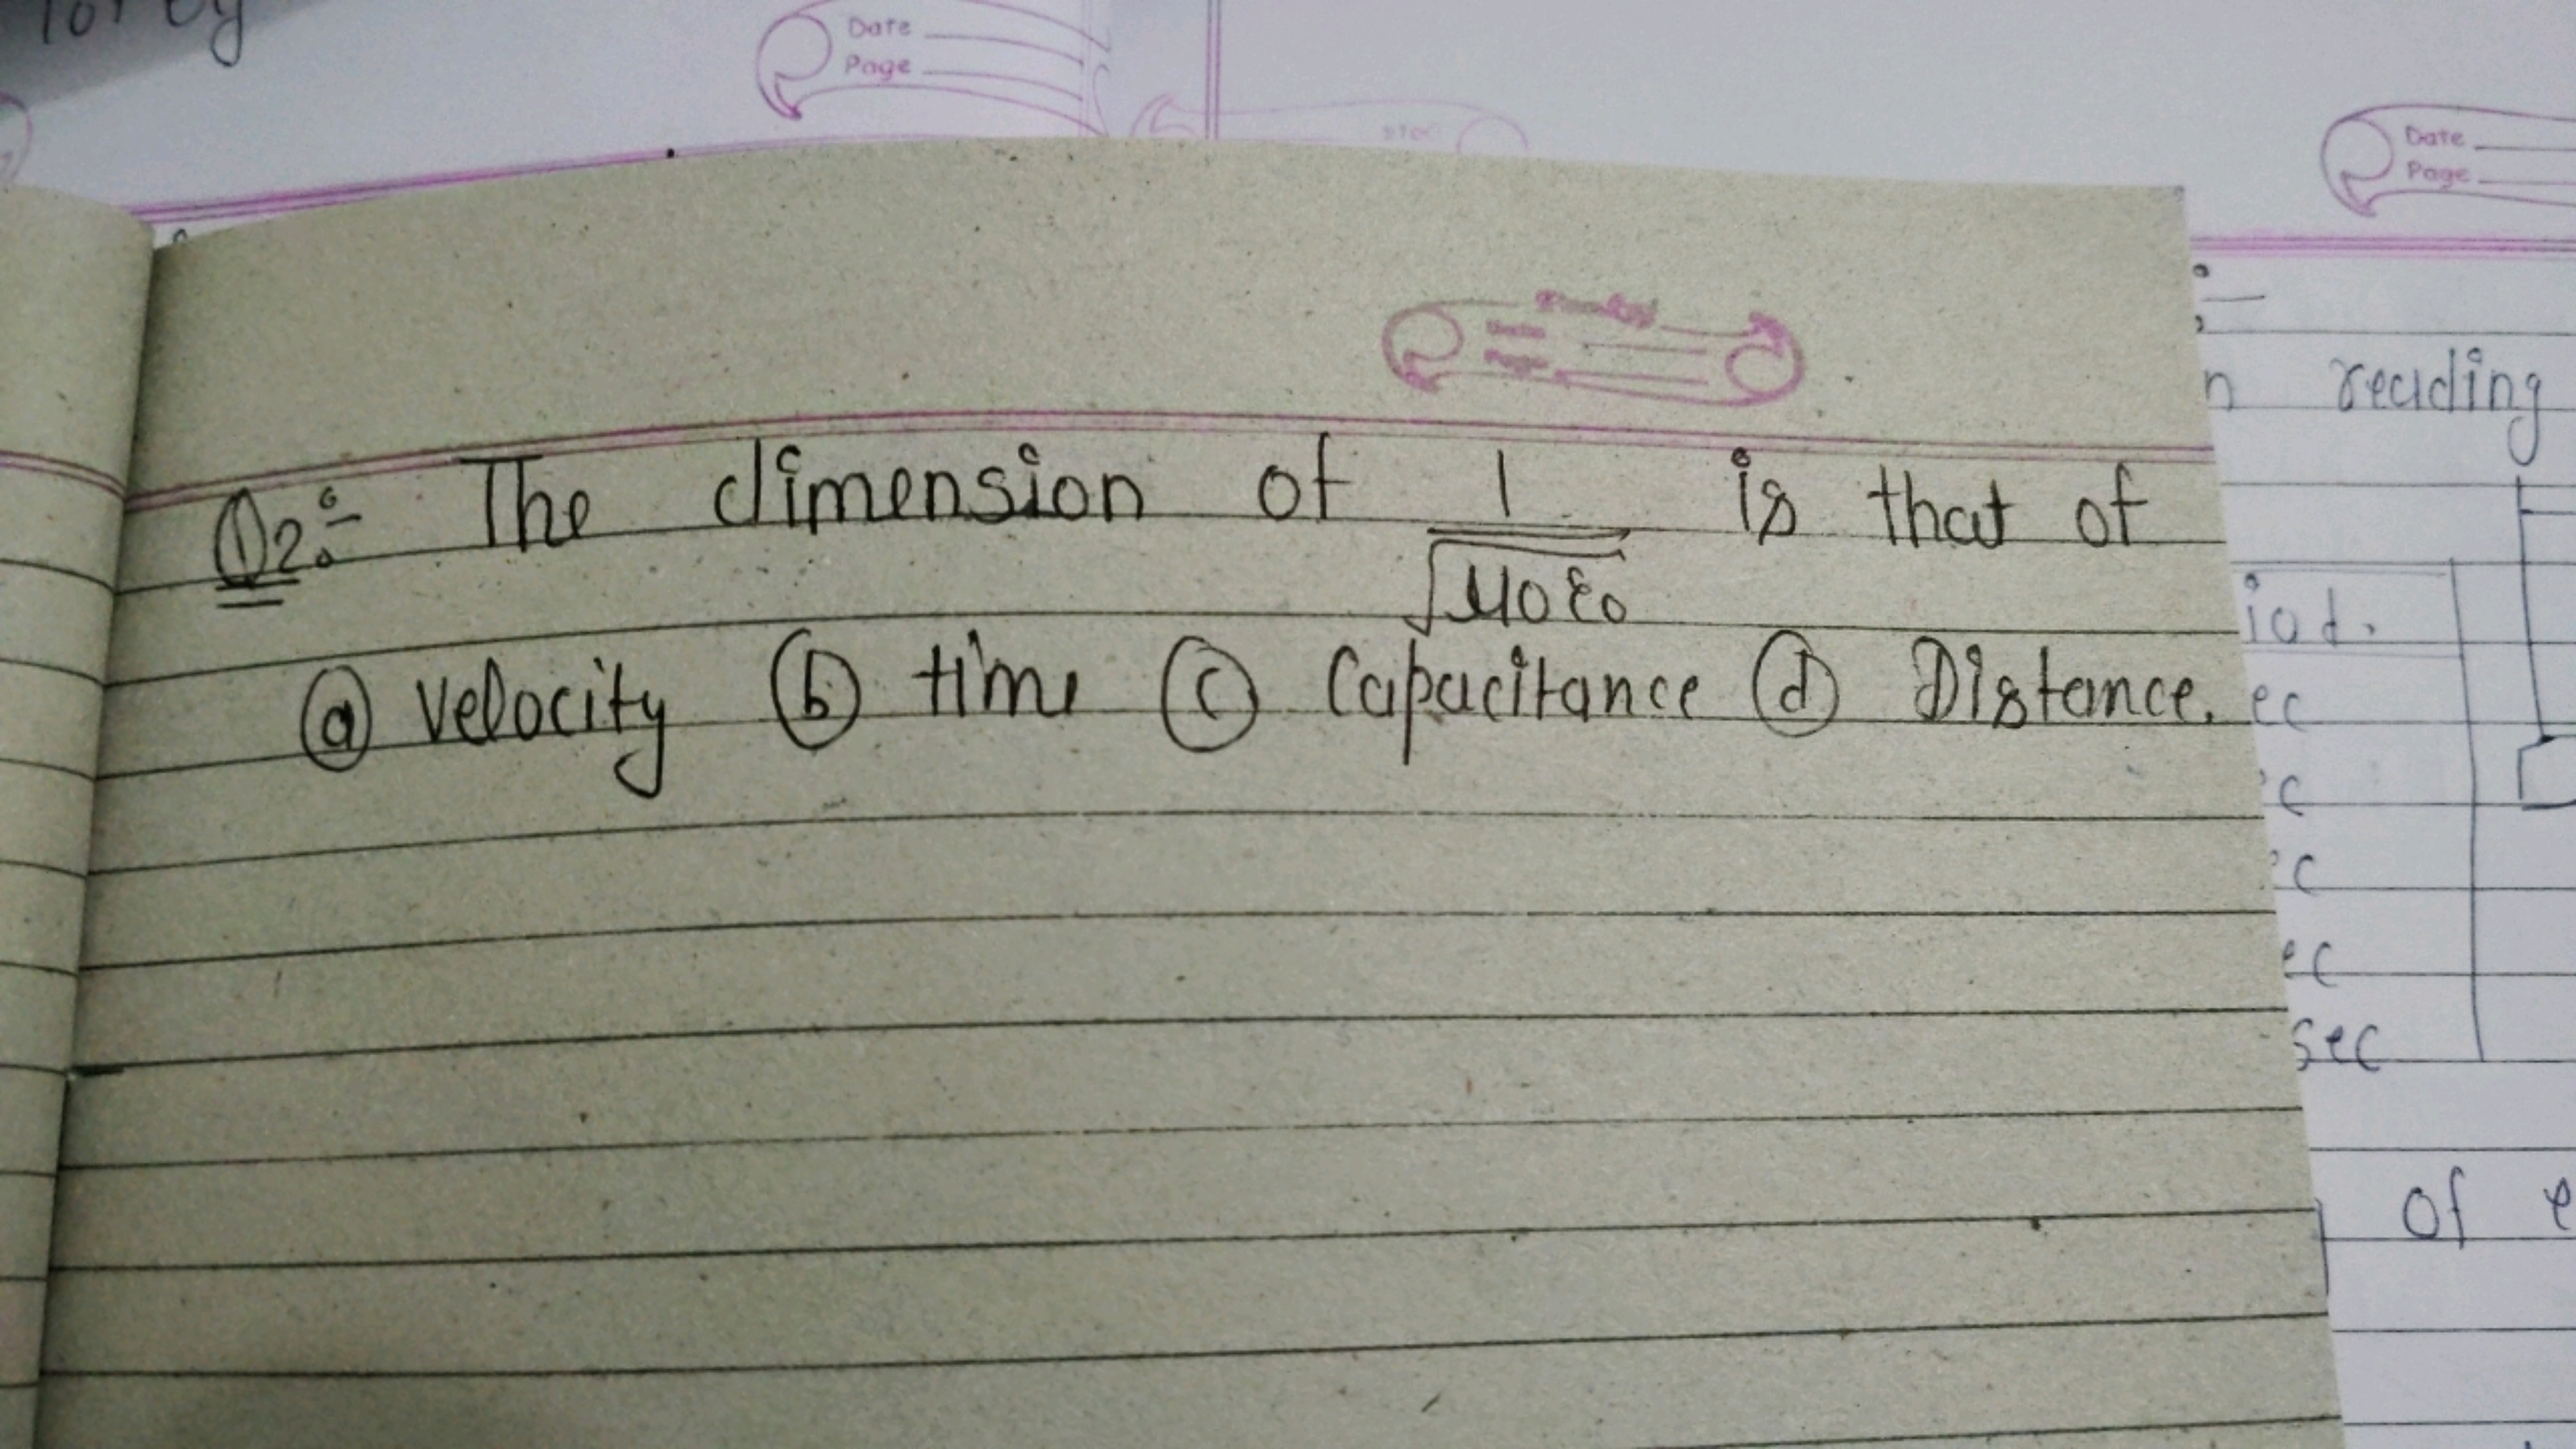 Date
Page
Date
Page
Q2:- The dimension of 1/√μ0ε0 is that of
(a) velocity (b) time (c) Capacitance (d) Distance.
reading
sec
of